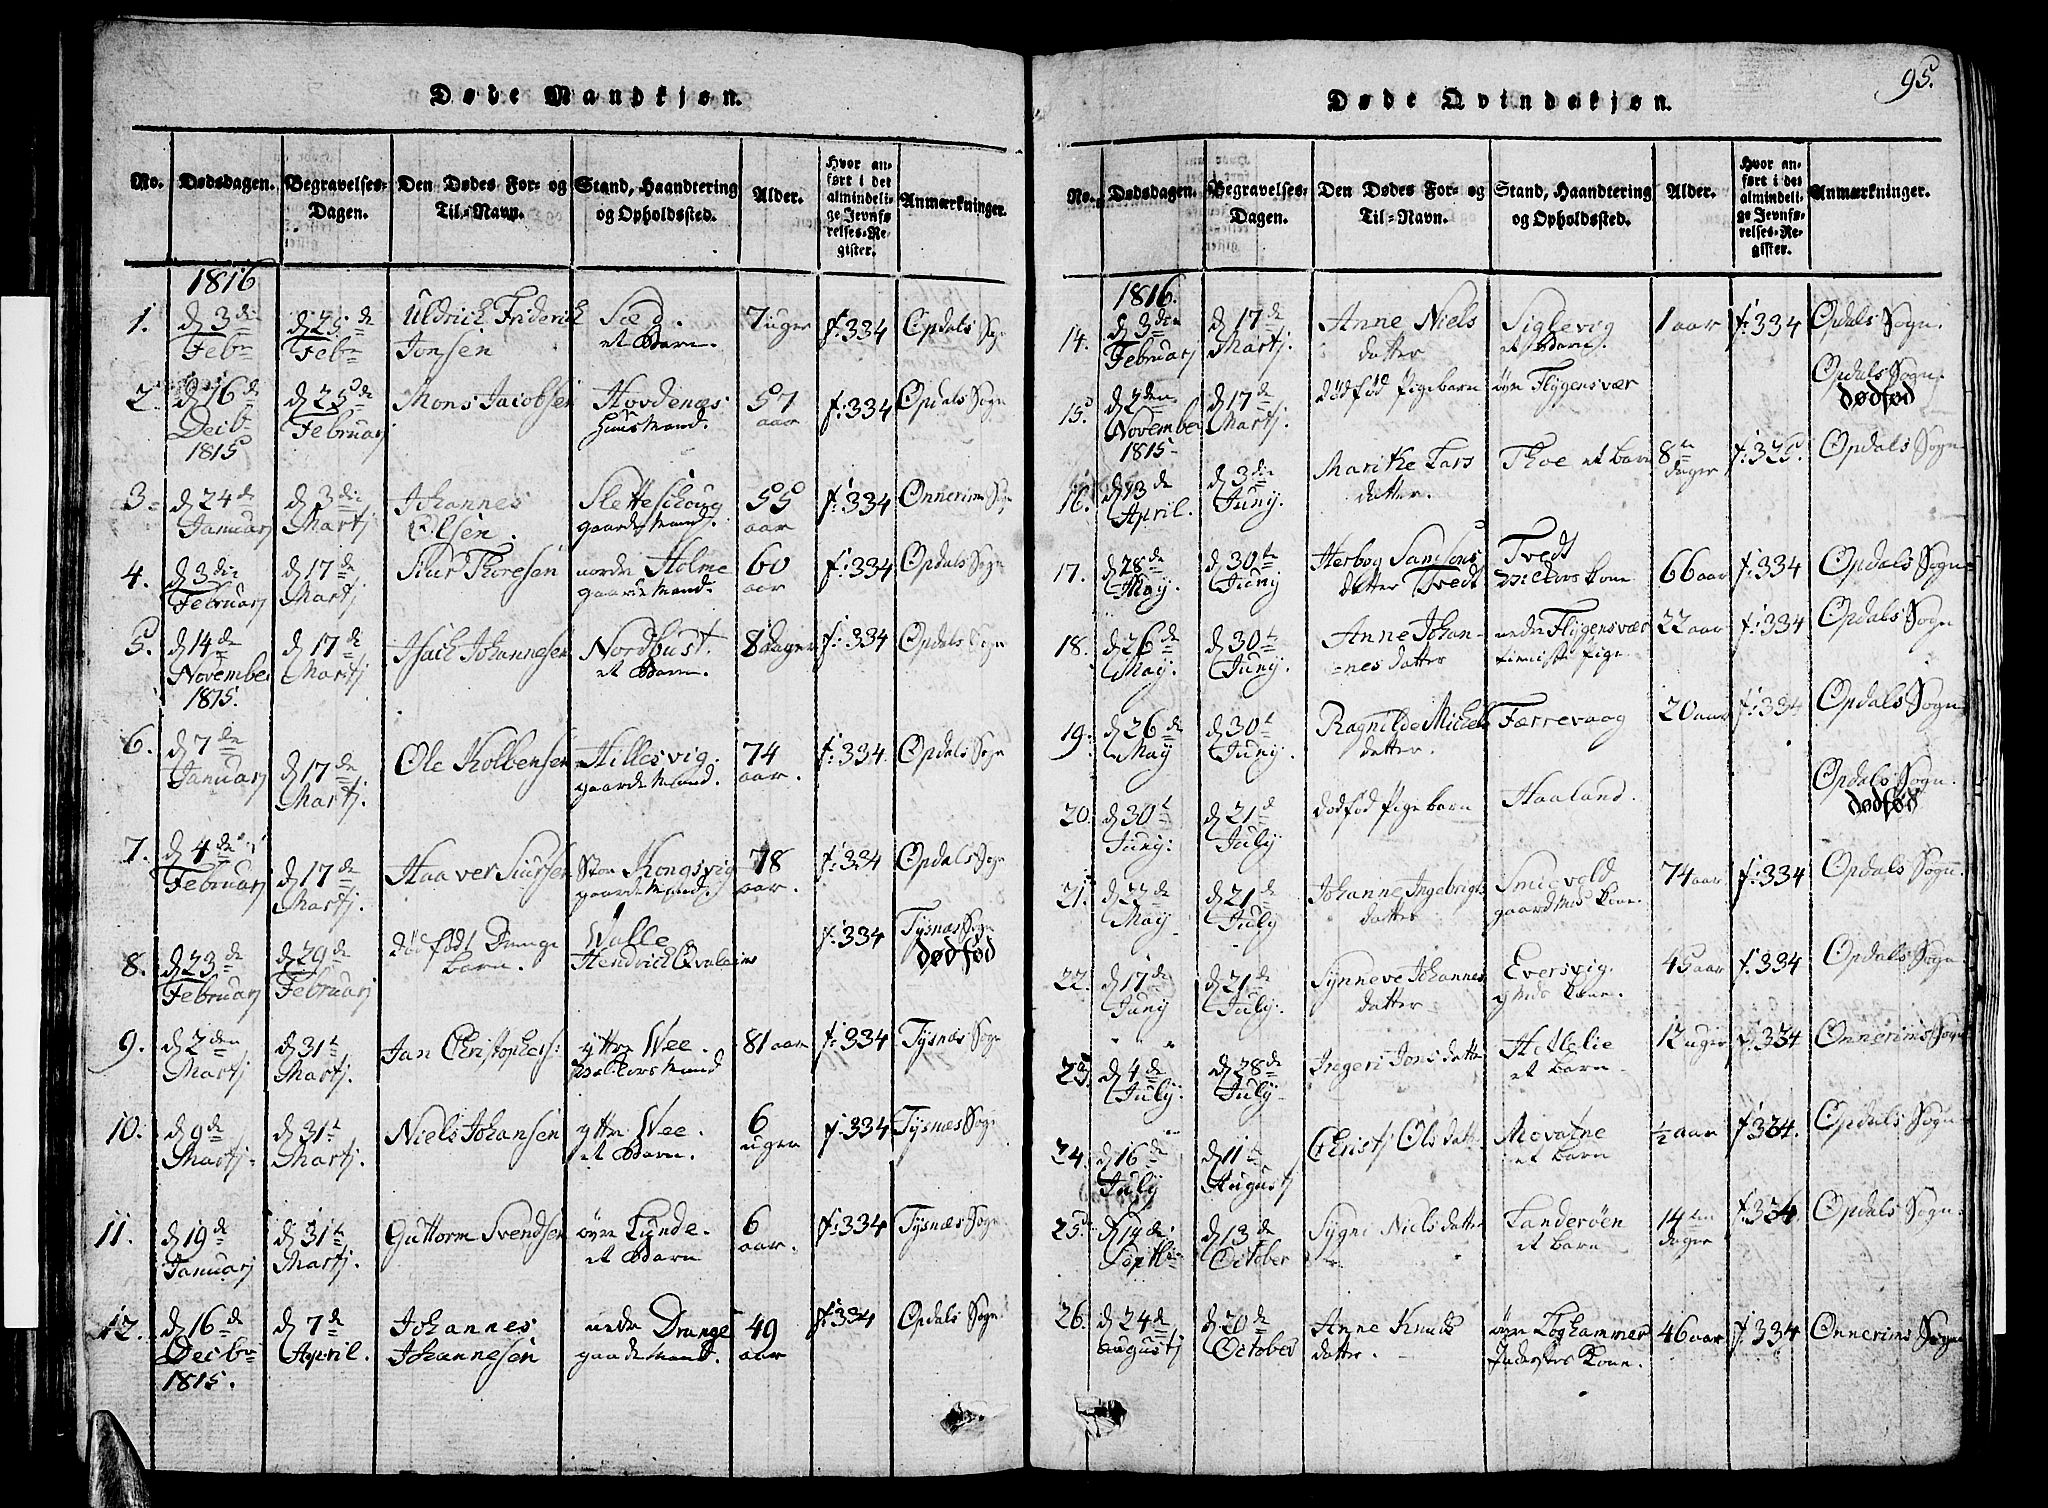 95.
Døde Mandkjøn.
No. Dødsdagen. Begravelses-Dagen. Den Dødes For- og Til-Navn. Stand, Haandtering og Opholdssted. Alder. Hvor anført i det almindelige Jevnførelses-Register. Anmærkninger.
1816
1. d 3die Febr d 25de Febr Uldrich Friderich Jonsen Sæd. et Barn. 7 uger f: 334 Opdals Sogn
2. d 16de Decbr 1815 d 25de Februarj Mons Jacobsen Hovdenæs Huusmand. 57 aar f: 334 Opdals Sogn
3. d 24de Januarj d 3die Martj Johannes Olsen. Sletteschoug gaardsmand. 55 aar f: 334 Onnerims Sogn
4. d 3die Februarj d 17de Martj Siur Thoresen nordre Holme gaardemand. 60 aar f: 334 Opdals Sogn
5. d 14de November 1815. d 17de Martj Isach Johannesen Nordbust. et Barn. 8 dager f: 334 Opdals Sogn
6. d 7de Januarj d 17de Martj. Ole Kolbensen Hillesvig. gaardemand. 74 aar. f: 334 Opdals Sogn
7. d 4de Februarj d 17de Martj. Haaver Siursen Store Kongsvig gaardemand. 78 aar. f: 334 Opdals Sogn
8. d 23de Februarj d 29de Februarj dødfødt Drenge barn. Walle Hendrich f: 334 Tysnæs Sogn dødfød
9. d 2den Martj d 31te Martj. Jan Christophers: yttre Wee. 81 aar f: 334 Tysnæs Sogn
10. d 9de Martj. d 31te Martj. Niels Johansen yttre Wee. et Barn. 6 uger f: 334 Tysnæs Sogn
11. d 19de Januarj d 31te Martj. Guttorm Svendsen øvre Lunde. et Barn 6 aar. f: 334 Tysnæs Sogn
12. d 16de Decbr 1815. d 7de April. Johannes Johannesen nedre Drange gaardemand. 49 aar f: 334 Opdals Sogn
Døde Qvindekjøn.
No. Dødsdagen. Begravelses-Dagen. Den Dødes For- og Til-Navn. Stand, Haandtering og Opholdssted. Alder. Hvor anført i det almindelige Jevnførelses-Register. Anmærkninger.
1816.
14. d 3die Februarj d 17de Martj. Anne Niels datter Siglevig et Barn. 1 aar f: 334 Opdals Sogn.
15. d 2den November 1815 d 17de Martj. dødfød Pigebarn øvre Flygensvær Opdals Sogn. dødfød
16. d 13de April. d 3die Juny. Marithe Lars datter. Thoe et barn 8te dager f: 325. Opdals Sogn
17. d 28de May. d 30te Juny Herbog Samsons datter Tvedt Tvedt kone 66 aar f: 334 Opdals Sogn
18. d 26de May. d 30te Juny. Anne Johannes datter nedre Flygensvær pige. 22 aar f: 334 Opdals Sogn
19. d 26de May d 30te Juny. Ragnilde Michels datter. Færrevaag 20 aar f: 334 Opdals Sogn
20. d 30te Juny. d 21de July dødfød Pigebarn Haaland. Opdals Sogn. dødfød
21. d 22de May d 21de July Johanne Ingebrigts datter Smievold gaardmds kone. 74 aar f: 334 Opdals Sogn
22. d 17de Juny d 21de July. Synneve Johannes datter Eversvig. kone. 45 aar f: 334 Opdals Sogn
23. d 4de July. d 28de July. Ingeri Jons datter Hetlelie et barn 12 uger f: 334 Onnerims Sogn
24. d 16de July d 11te Augustj Christj Ols datter Movatne et barn ½ aar f 334. Opdals Sogn
25. d 19de Septbr d 13de October Sygni Niels datter Landerøen et barn 14ten dager f: 334. Opdals Sogn
26. d 24de augustj d 20de October Anne Knuds datter. øvre Løghammer kone. 46 aar f: 334 Onnerims Sogn